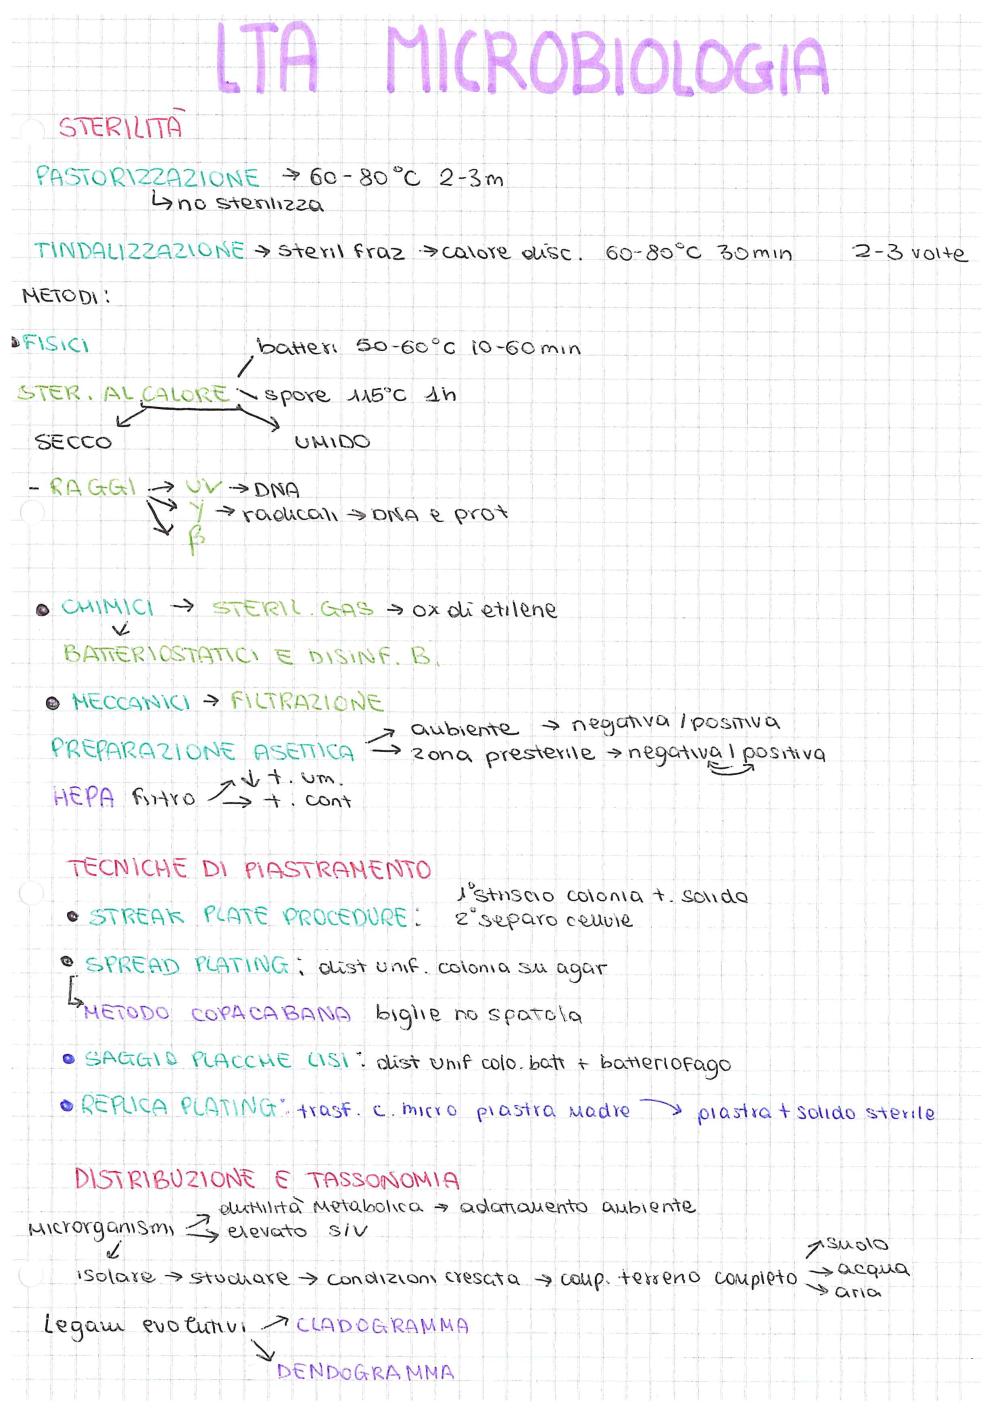 LTA MICROBIOLOGIA
STERILITÀ
PASTORIZZAZIONE → 60-80°C 2-3m
↳no sterilizza
TINDALIZZAZIONE → steril fraz → calore disc. 60-80°C 30min 2-3 volte
METODI:
•FISICI
batteri 50-60°C 10-60min
STER. AL CALORE
spore 115°C 1h
SECCO UMIDO
- RAGGI → UV → DNA
γ → radicali → DNA e prot
β
• CHIMICI → STERIL. GAS → ox di etilene
BATTERIOSTATICI E DISINF. B.
• MECCANICI → FILTRAZIONE
ambiente → negativa / positiva
PREPARAZIONE ASETTICA → zona presterile → negativa / positiva
↓ t. um.
HEPA filtro → t. cont
TECNICHE DI PIASTRAMENTO
1° striscio colonia t. solido
• STREAK PLATE PROCEDURE: 2° separo cellule
• SPREAD PLATING: dist unif. colonia su agar
↳METODO COPACABANA biglie no spatola
• SAGGIO PLACCHE LISI: dist unif colo. batt + batteriofago
• REPLICA PLATING: trasf. c. micro piastra madre → piastra t solido sterile
DISTRIBUZIONE E TASSONOMIA
duttilità metabolica → adattamento ambiente
Microrganismi → elevato S/V
suolo
isolare → studiare → condizioni crescita → comp. terreno completo → acqua
aria
Legami evolutivi → CLADOGRAMMA
DENDOGRAMMA